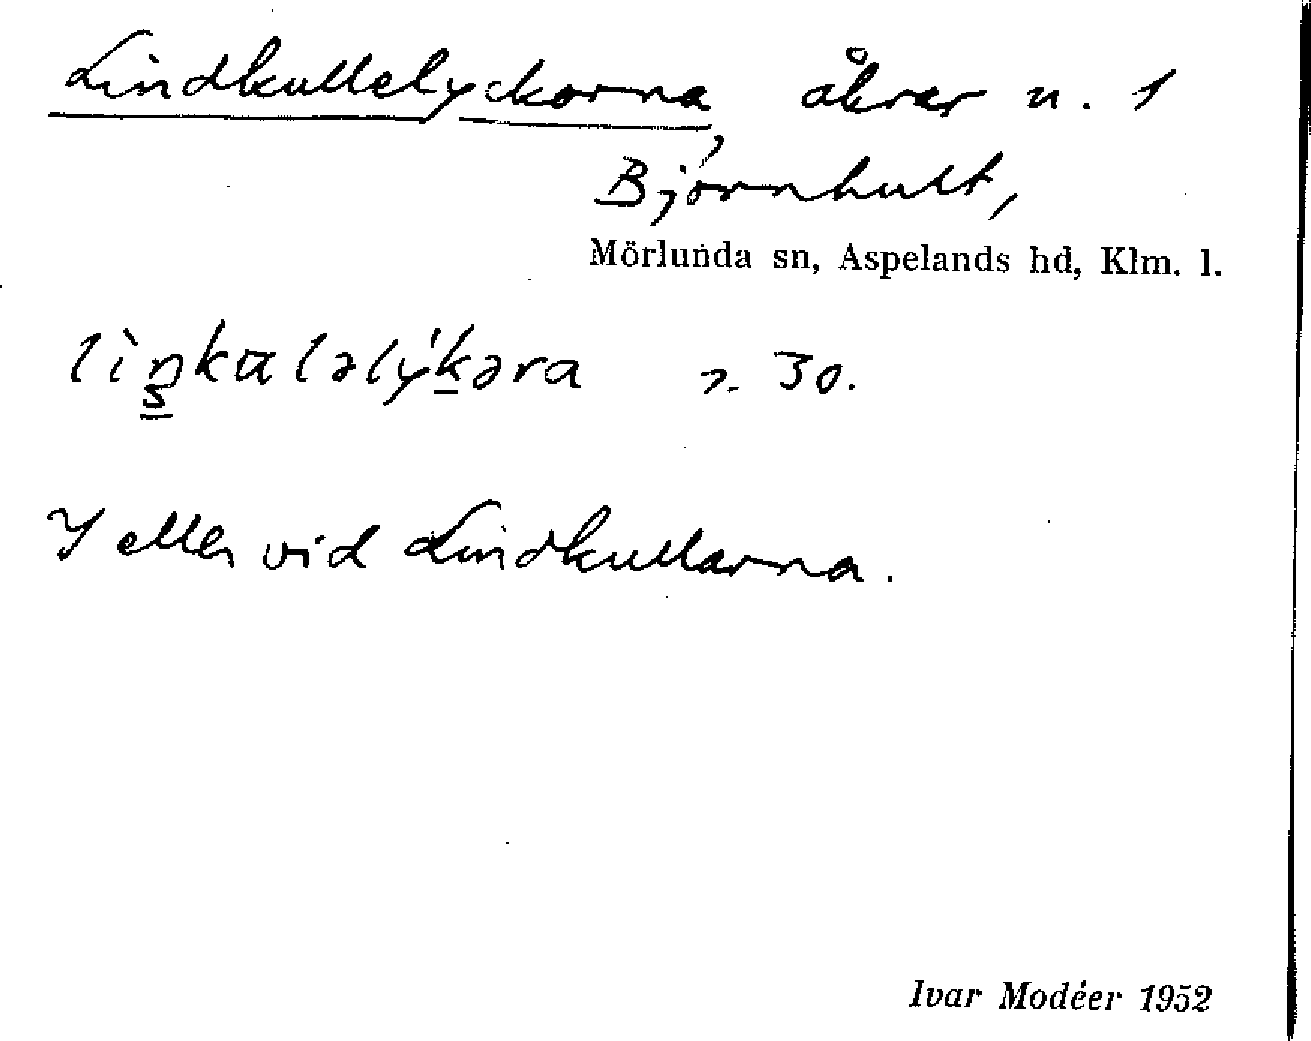 Lindkullelyckorna, åkrar n. 1
Björnhult,
Mörlunda sn, Aspelands hd, Klm. l.
30.
I eller vid Lindkullarna.
Ivar Modéer 1952